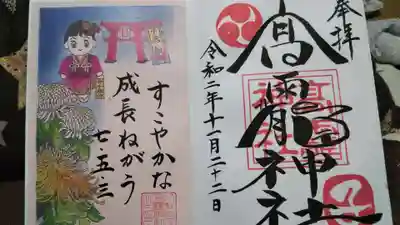 奉拝
髙龗神社
令和二年十一月二十二日
すこやかな
成長ねがう
七五三